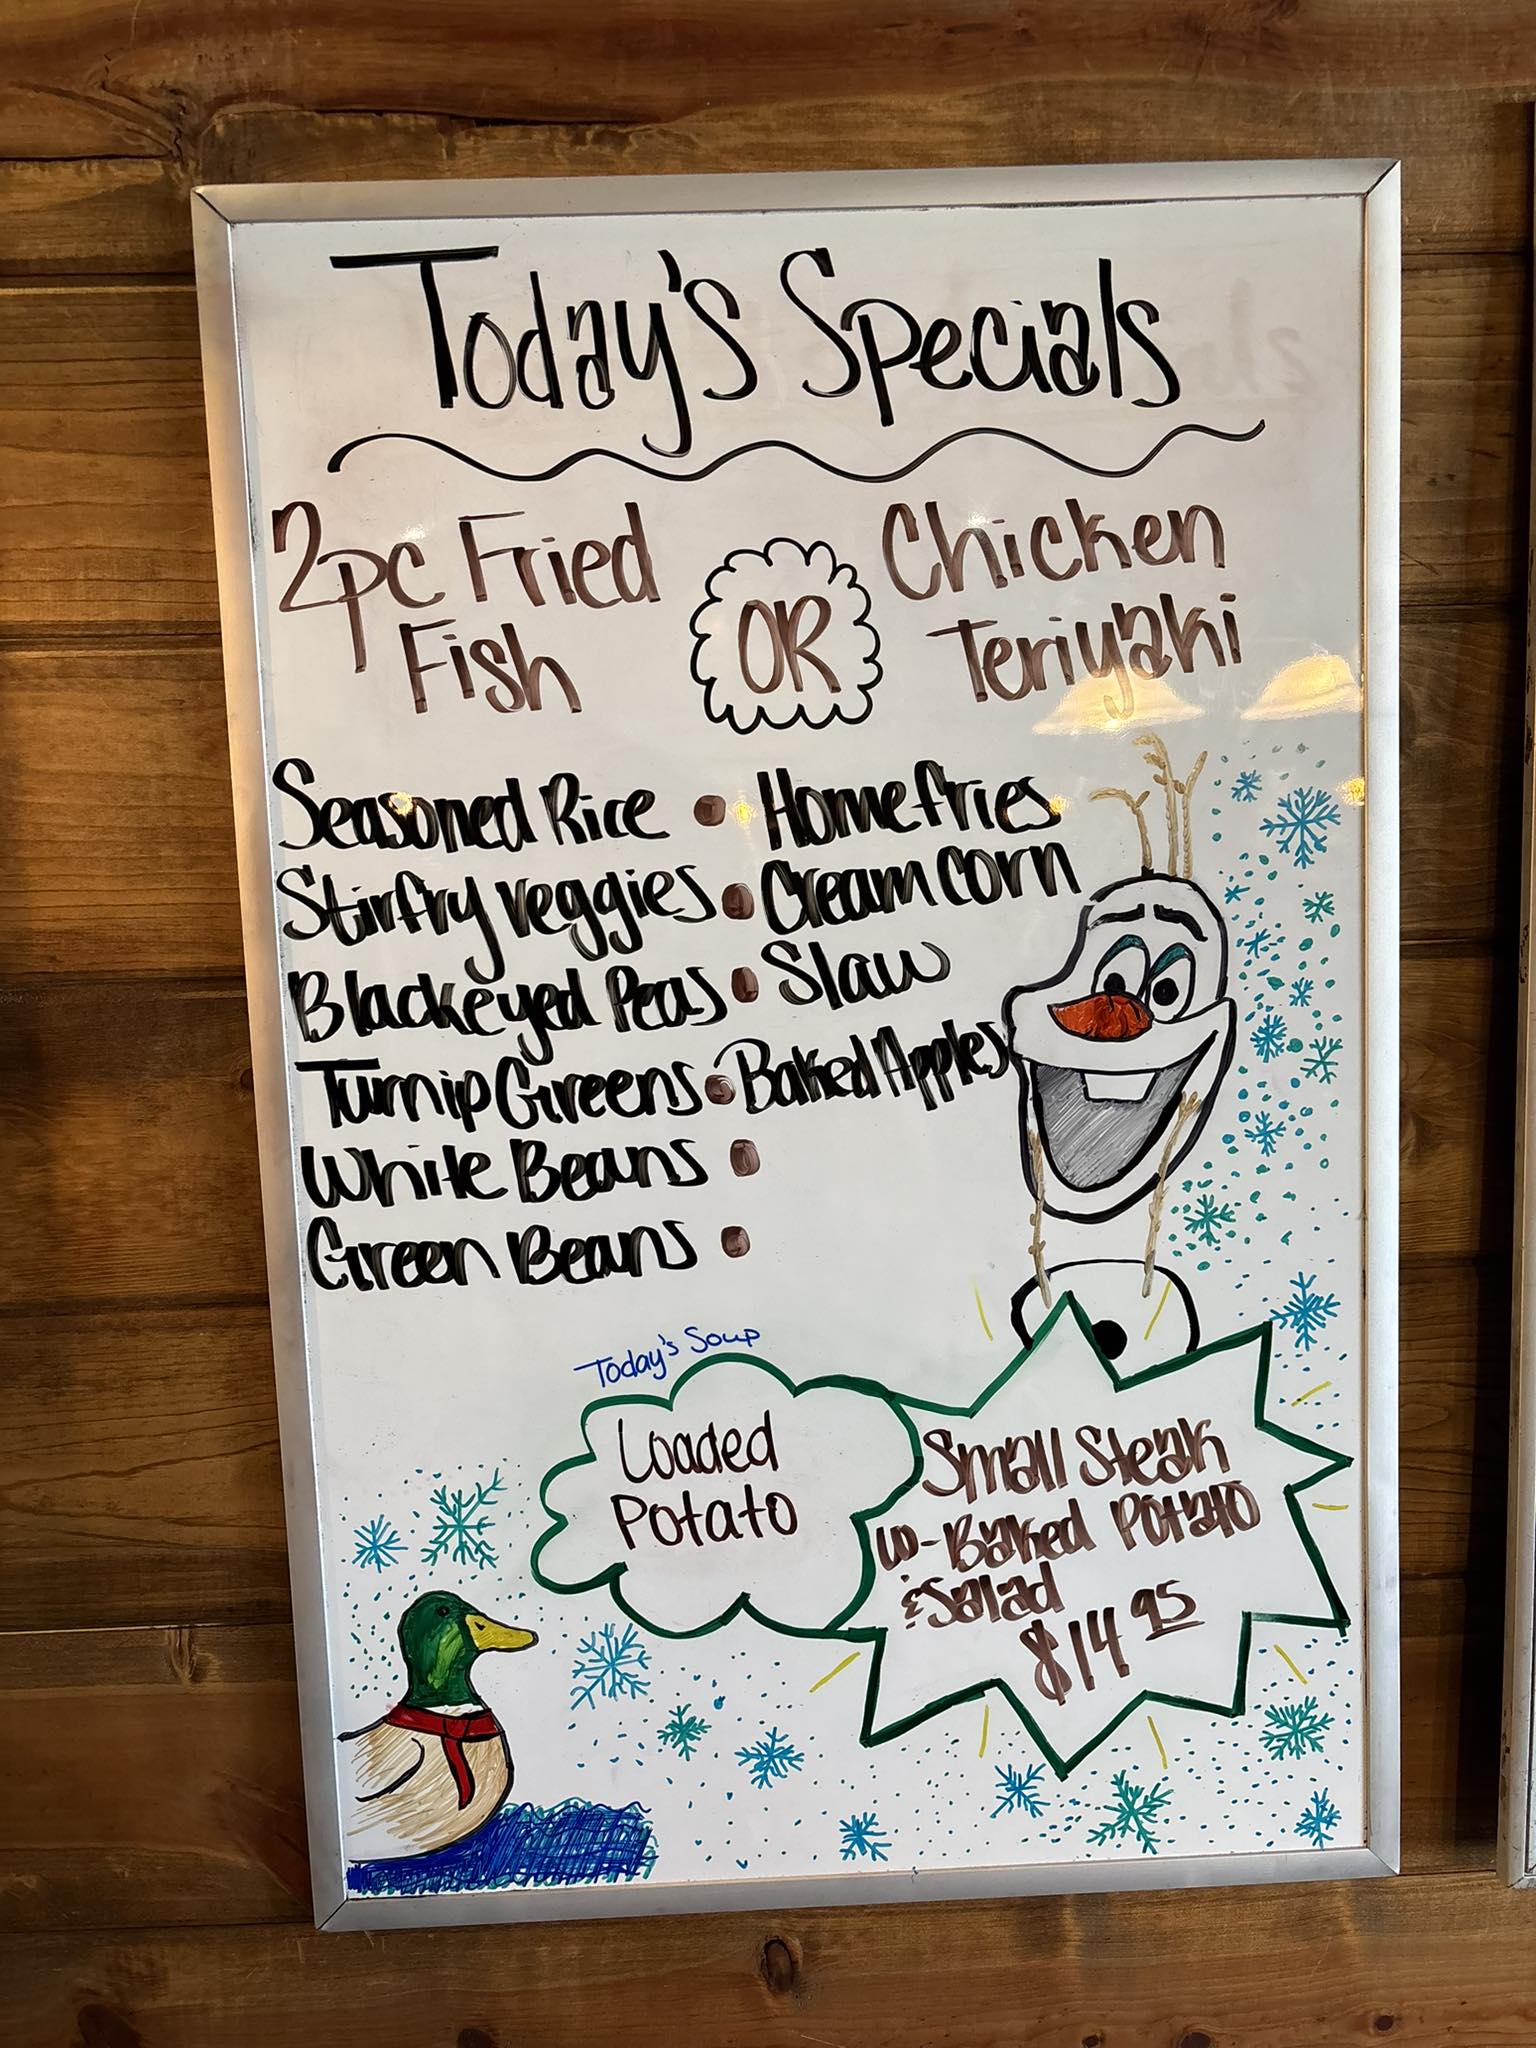 Today's Specials
2pc Fried
Fish
OR
Chicken
Teriyaki
Seasoned Rice • Homefries
Stirfry veggies • Cream corn
Blackeyed Peas • Slaw
Turnip Greens • Baked Apples
White Beans •
Green Beans •
Today's Soup
Loaded
Potato
Small Steak
w-Baked Potato
& Salad
$14 95